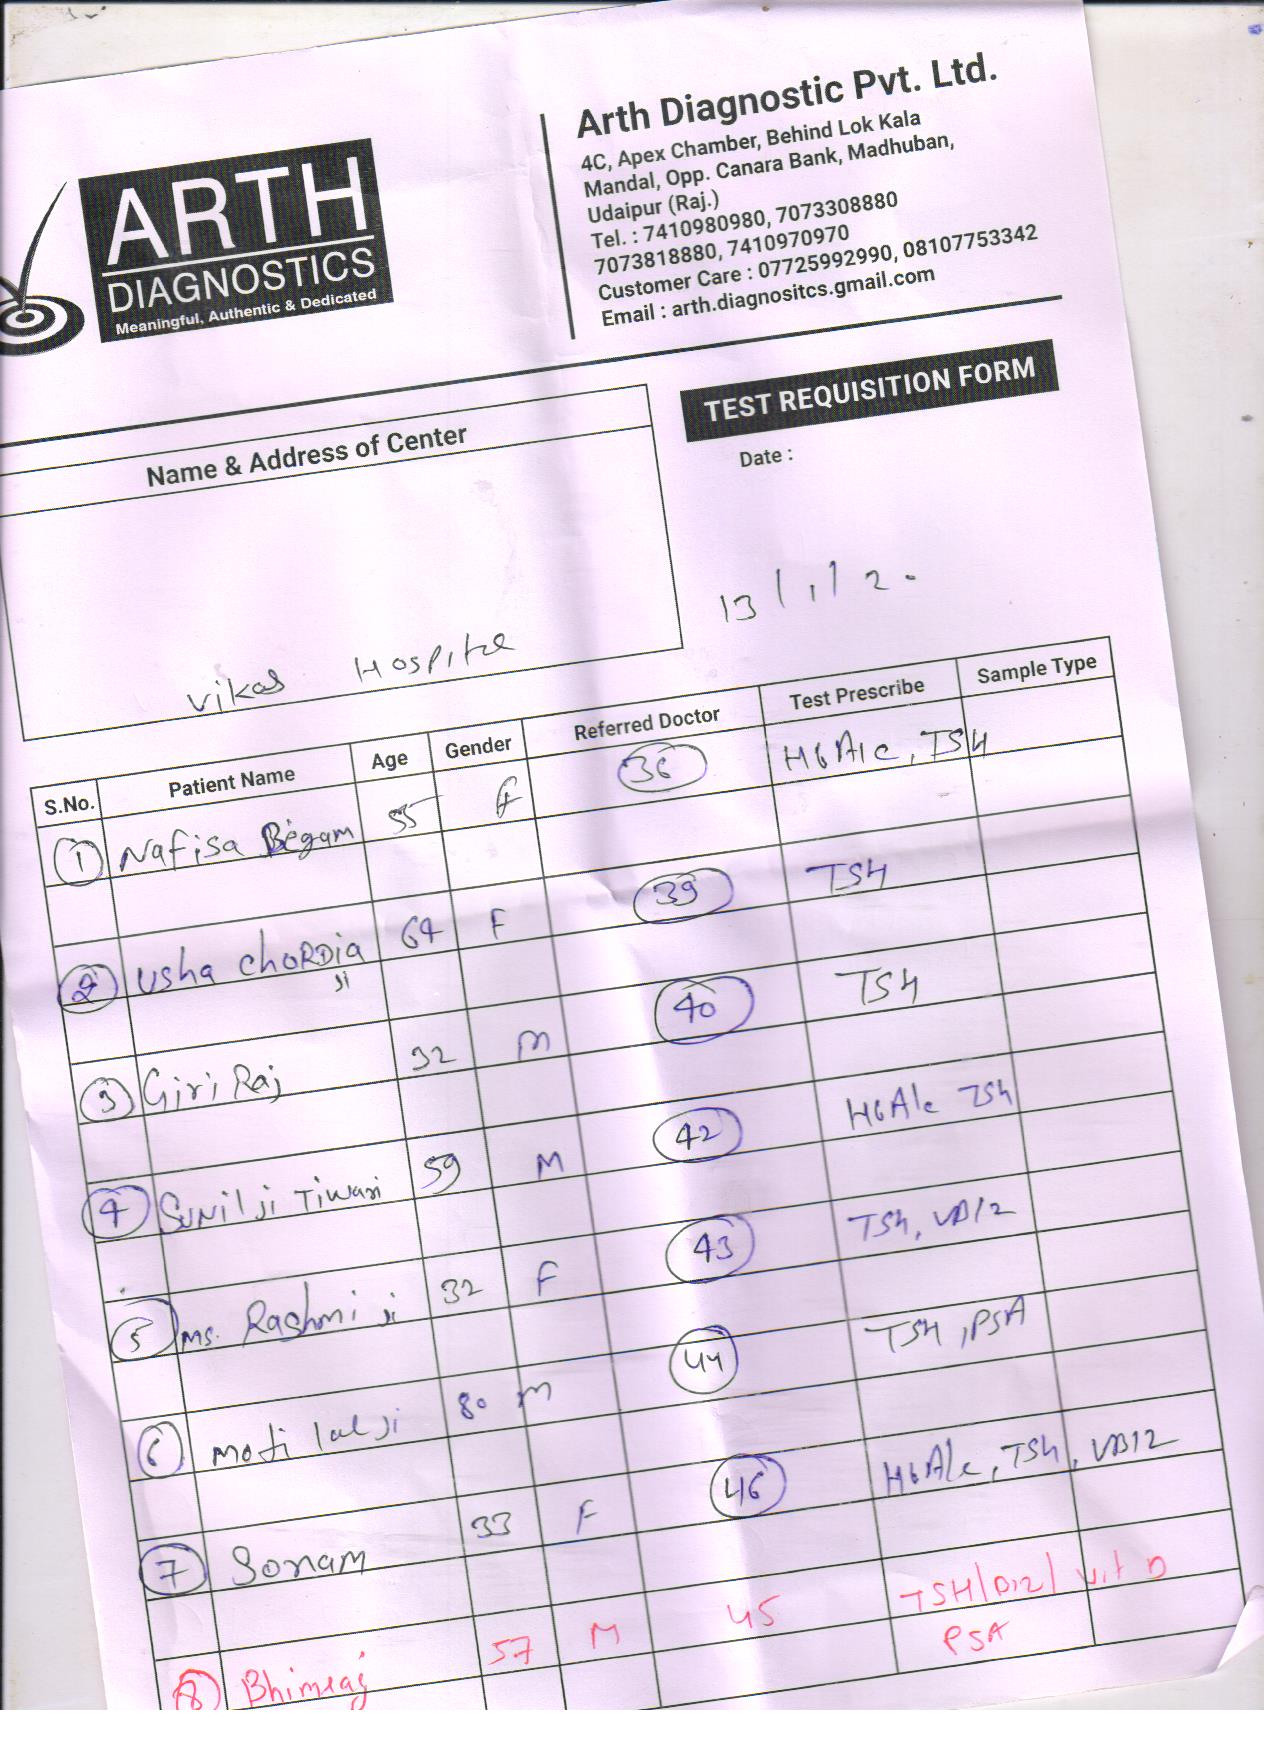 ARTH
DIAGNOSTICS
Meaningful, Authentic & Dedicated
Arth Diagnostic Pvt. Ltd.
4C, Apex Chamber, Behind Lok Kala
Mandal, Opp. Canara Bank, Madhuban,
Udaipur (Raj.)
Tel. : 7410980980, 7073308880
7073818880, 7410970970
Customer Care : 07725992990, 08107753342
Email : arth.diagnositcs.gmail.com
TEST REQUISITION FORM
Name & Address of Center
Date :
13/1/20
Vikas Hospital
S.No. Patient Name Age Gender Referred Doctor Test Prescribe Sample Type
1 Nafisa Begam 55 F 36 HbA1c, TSH
2 Usha Chordia ji 64 F 39 TSH
3 Giri Raj 32 M 40 TSH
4 Sunil ji Tiwari 59 M 42 HbA1c TSH
5 Ms. Rashmi ji 32 F 43 TSH, VB12
6 Moti lal ji 80 M 44 TSH, PSA
7 Sonam 33 F 46 HbA1c, TSH, VB12
8 Bhimraj 57 M 45 TSH/B12/Vit D
PSA